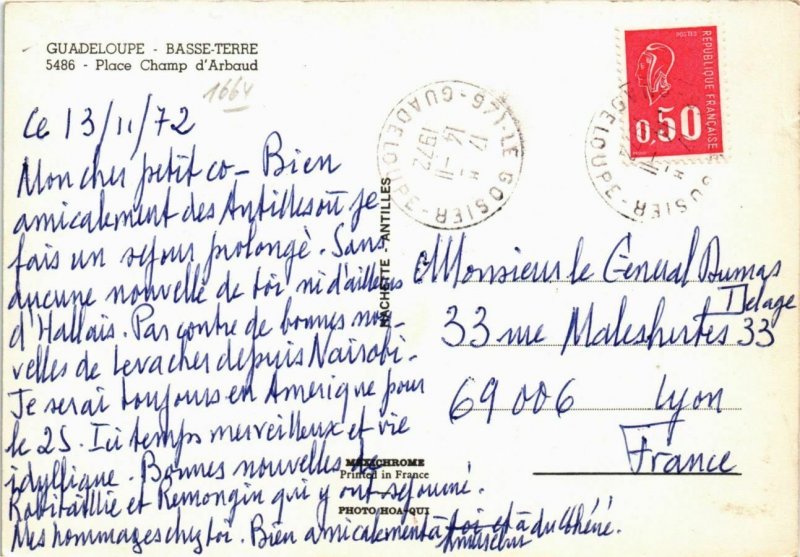 GUADELOUPE - BASSE-TERRE
5486 - Place Champ d'Arbaud
1664
Ce 13/11/72
Mon cher petit co - Bien
amicalement des Antilles où je
fais un séjour prolongé. Sans
aucune nouvelle de toi ni d'ailleurs
d'Hallais. Par contre de bonnes nou-
velles de Levacher depuis Nairobi.
Je serai toujours en Amérique pour
le 25. Ici temps merveilleux et vie
idyllique. Bonnes nouvelles de
et Remongin qui y ont séjourné.
Mes hommages chez toi. Bien amicalement à toi et à
HACHETTE - ANTILLES
MEXICHROME
Printed in France
PHOTO HOA-QUI
146 - LE GOSIER - GUADELOUPE
17 H
14 - 11
1972
POSTES
RÉPUBLIQUE FRANÇAISE
0,50
Monsieur le Général Dumas
33 rue Malesherbes 33
69006 Lyon
France